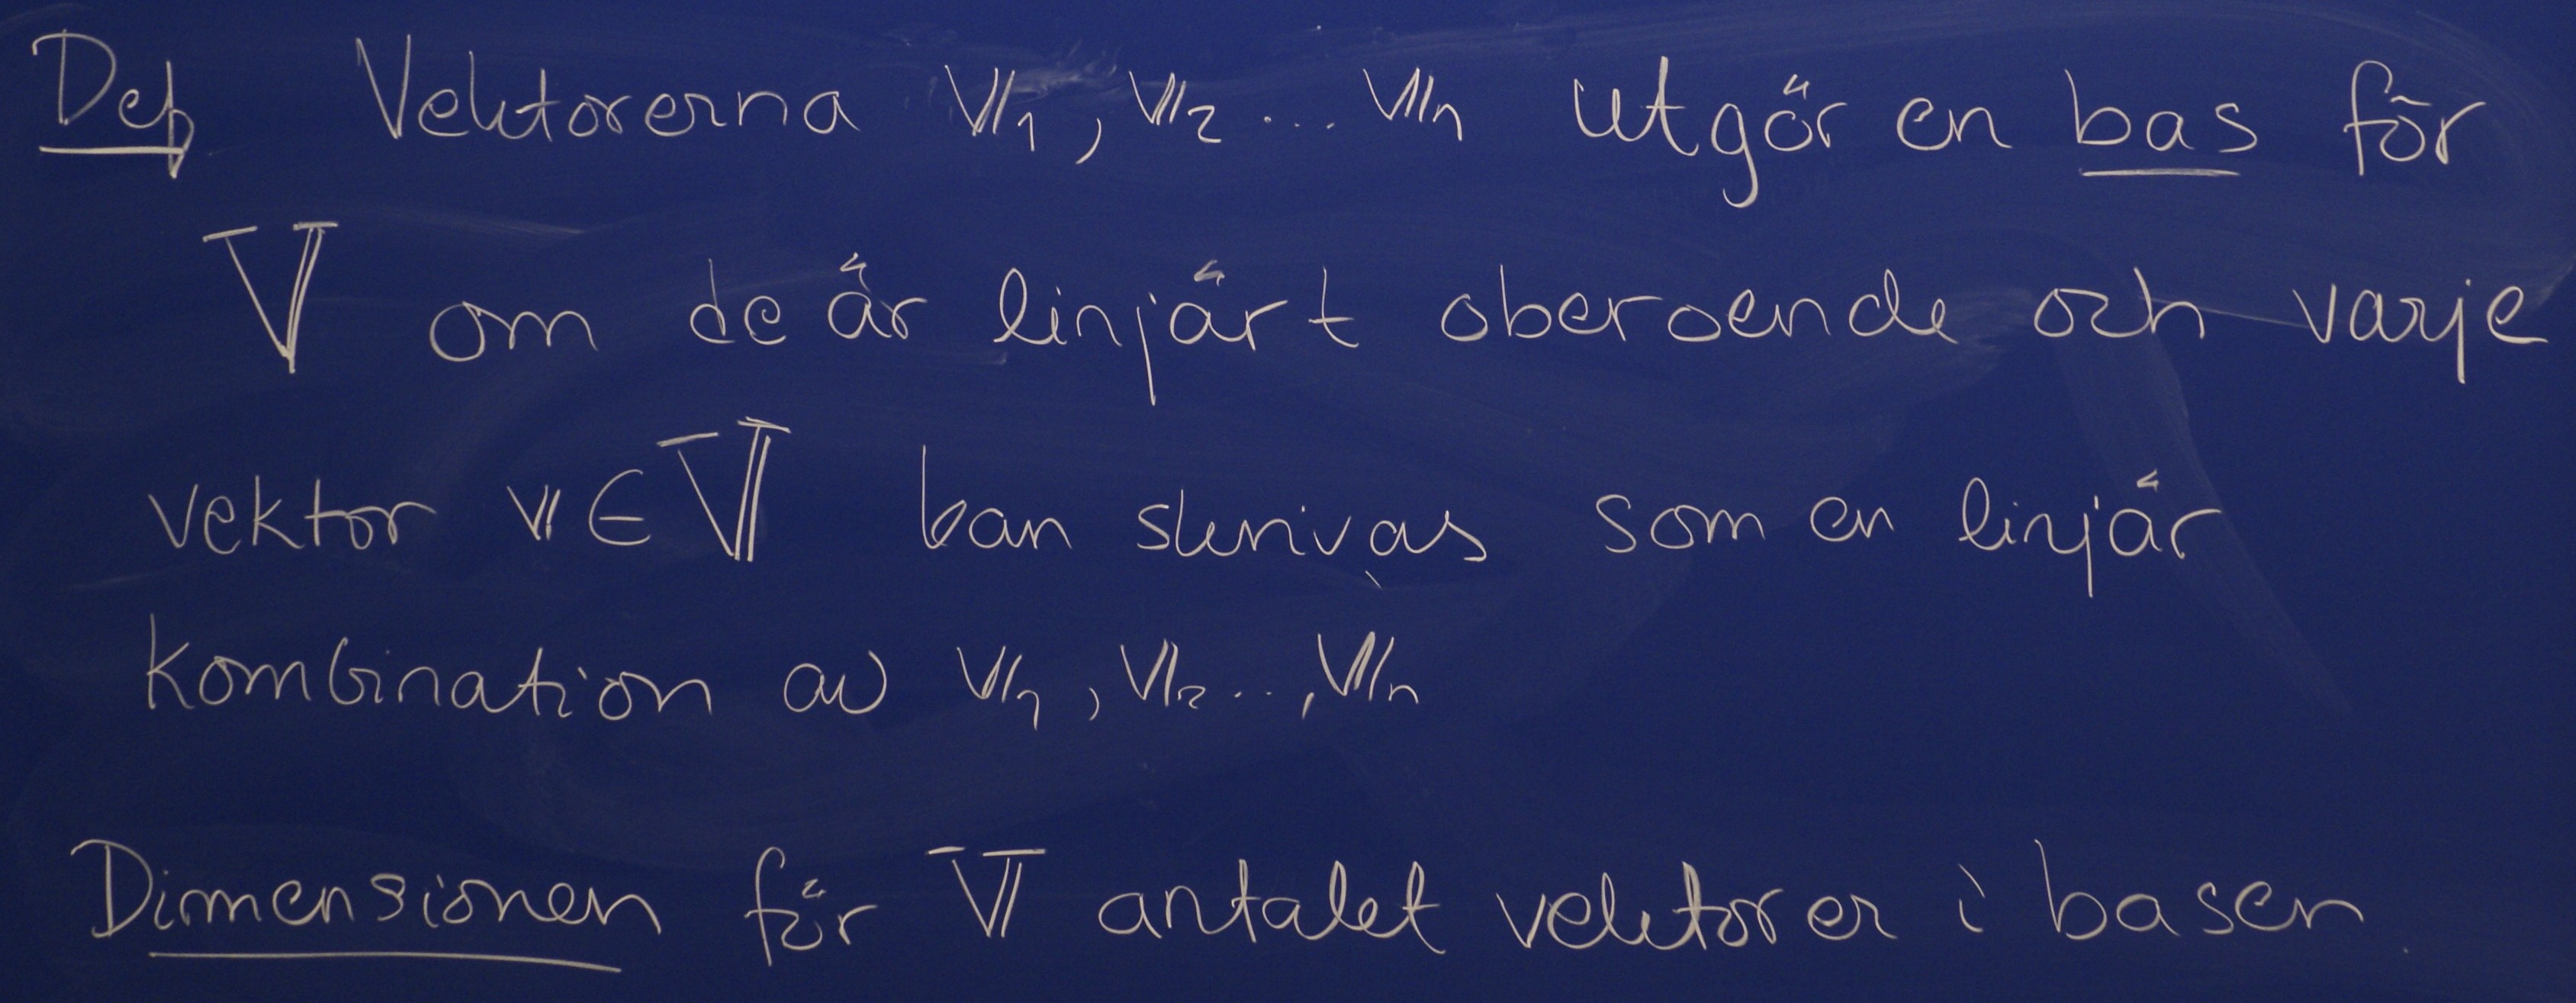 Def Vektorerna 𝕧₁, 𝕧₂ ... 𝕧ₙ utgör en bas för
𝕍 om de är linjärt oberoende och varje
vektor 𝕧 ∈ 𝕍 kan skrivas som en linjär
kombination av 𝕧₁, 𝕧₂..., 𝕧ₙ
Dimensionen för 𝕍 antalet vektorer i basen.